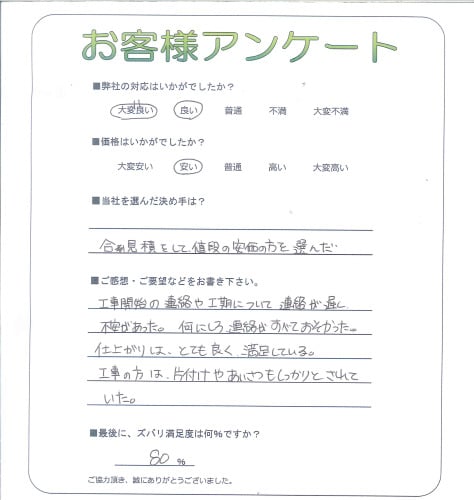 お客様アンケート
■弊社の対応はいかがでしたか？
大変良い 良い 普通 不満 大変不満
■価格はいかがでしたか？
大変安い 安い 普通 高い 大変高い
■当社を選んだ決め手は？
合見積をして値段の安価の方を選んだ
■ご感想・ご要望などをお書き下さい。
工事開始の連絡や工期について連絡が遅く
不安があった。何にしろ連絡がすべておそかった。
仕上がりは、とても良く満足している。
工事の方は、片付けやあいさつもしっかりとされて
いた。
■最後に、ズバリ満足度は何%ですか？
80 %
ご協力頂き、誠にありがとうございました。